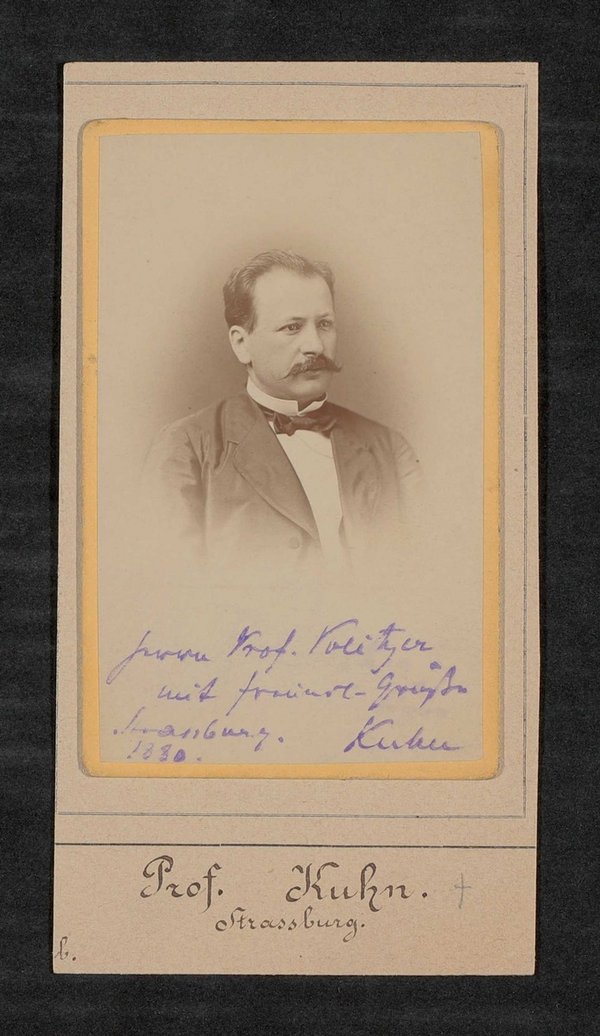 Herrn Prof. Politzer
mit freundl. Grüßen
Strassburg. Kuhn
1880.
Prof. Kuhn. †
Strassburg.
b.